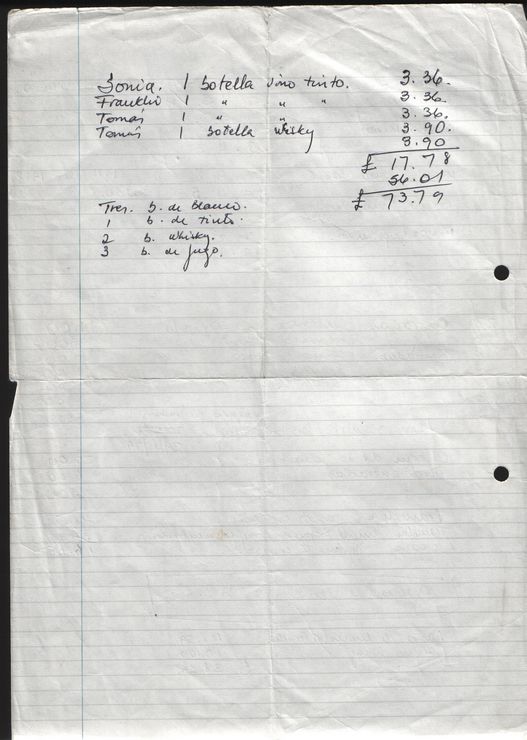 Sonia. 1 botella vino tinto. 3.36.
Franklin 1 " " " 3.36.
Tomás 1 " " 3.36.
Tomás 1 botella whisky 3.90.
3.90
£ 17.78
56.01
£ 73.79
Tres. b. de blanco.
1 b. de tinto.
2 b. whisky.
3 b. de jugo.